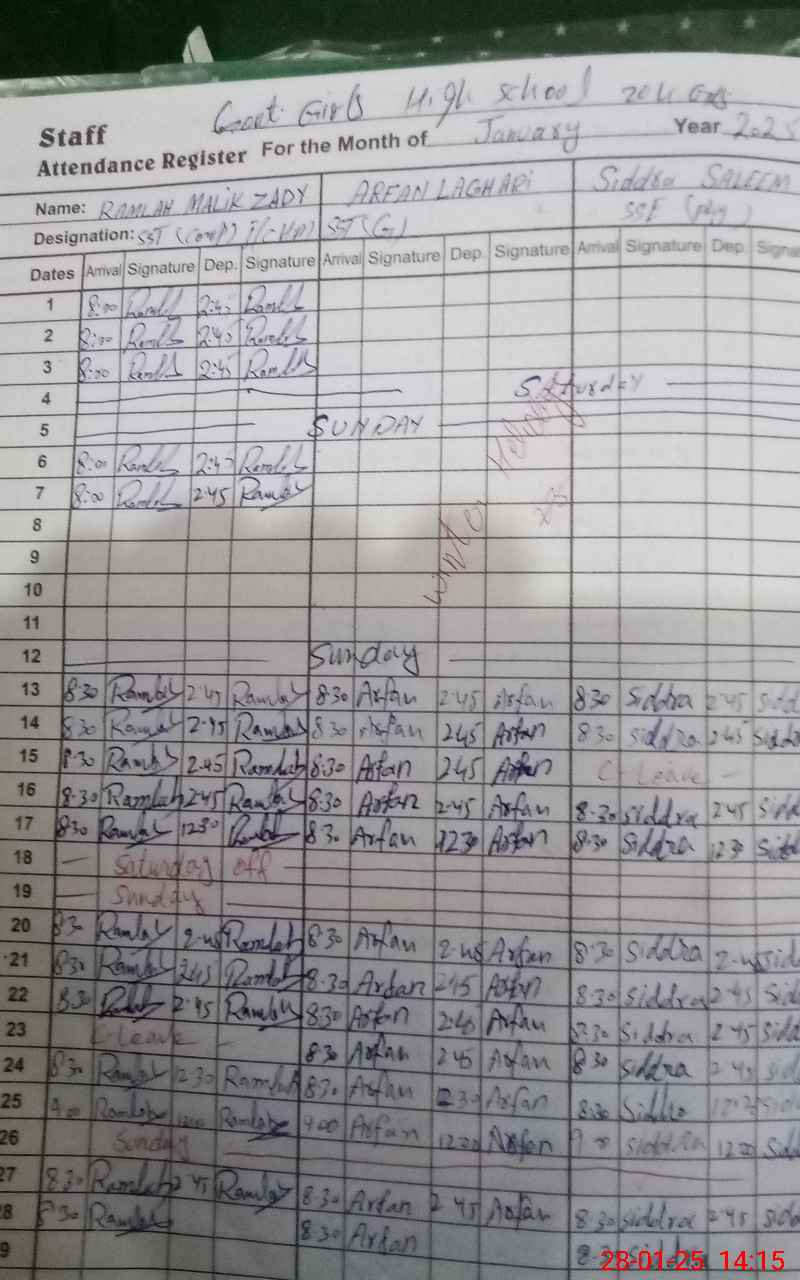 Govt. Girls High School
Staff
Attendance Register For the Month of January Year 2025
Name: RAMLAH MALIK ZADY ARFAN LAGHARI Siddra SALEEM
Designation: SST (Comp) SST(G)
Dates Arrival Signature Dep. Signature Arrival Signature Dep. Signature Arrival Signature Dep. Signa
1 8:00 Ramlah 2:45 Ramlah
2 8:00 Ramlah 2:45 Ramlah
3 8:00 Ramlah 2:45 Ramlah
4 Saturday
5 SUNDAY
6 8:00 Ramlah 2:45 Ramlah
7 8:00 Ramlah 2:45 Ramlah
8
9
10
winter Holiday
11
12 Sunday
13 8:30 Ramlah 2:45 Ramlah 8:30 Arfan 2:45 Arfan 8:30 Siddra 2:45 Sidd
14 8:30 Ramlah 2:45 Ramlah 8:30 Arfan 2:45 Arfan 8:30 Siddra 2:45 Siddr
15 8:30 Ramlah 2:45 Ramlah 8:30 Arfan 2:45 Arfan C-Leave
16 8:30 Ramlah 2:45 Ramlah 8:30 Arfan 2:45 Arfan 8:30 Siddra 2:45 Sidd
17 8:30 Ramlah 12:30 Ramlah 8:30 Arfan 12:30 Arfan 8:30 Siddra 12:30 Sidd
18 Saturday off
19 Sunday
20 8:30 Ramlah 2:45 Ramlah 8:30 Arfan 2:45 Arfan 8:30 Siddra 2:45 Sid
21 8:30 Ramlah 2:45 Ramlah 8:30 Arfan 2:45 Arfan 8:30 Siddra 2:45 Sid
22 8:30 Ramlah 2:45 Ramlah 8:30 Arfan 2:45 Arfan 8:30 Siddra 2:45 Sidd
23 C-Leave 8:30 Arfan 2:45 Arfan 8:30 Siddra 2:45 Sid
24 8:30 Ramlah 12:30 Ramlah 8:30 Arfan 12:30 Arfan 8:30 Siddra 12:30 Sid
25 9:00 Ramlah 12:00 Ramlah 9:00 Arfan 12:00 Arfan 9:00 Siddra 12:00 Sidd
26 Sunday
27 8:30 Ramlah 2:45 Ramlah 8:30 Arfan 2:45 Arfan 8:30 Siddra 2:45 Sidd
8 8:30 Ramlah 8:30 Arfan 8:30 Siddra
9
28-01-25 14:15